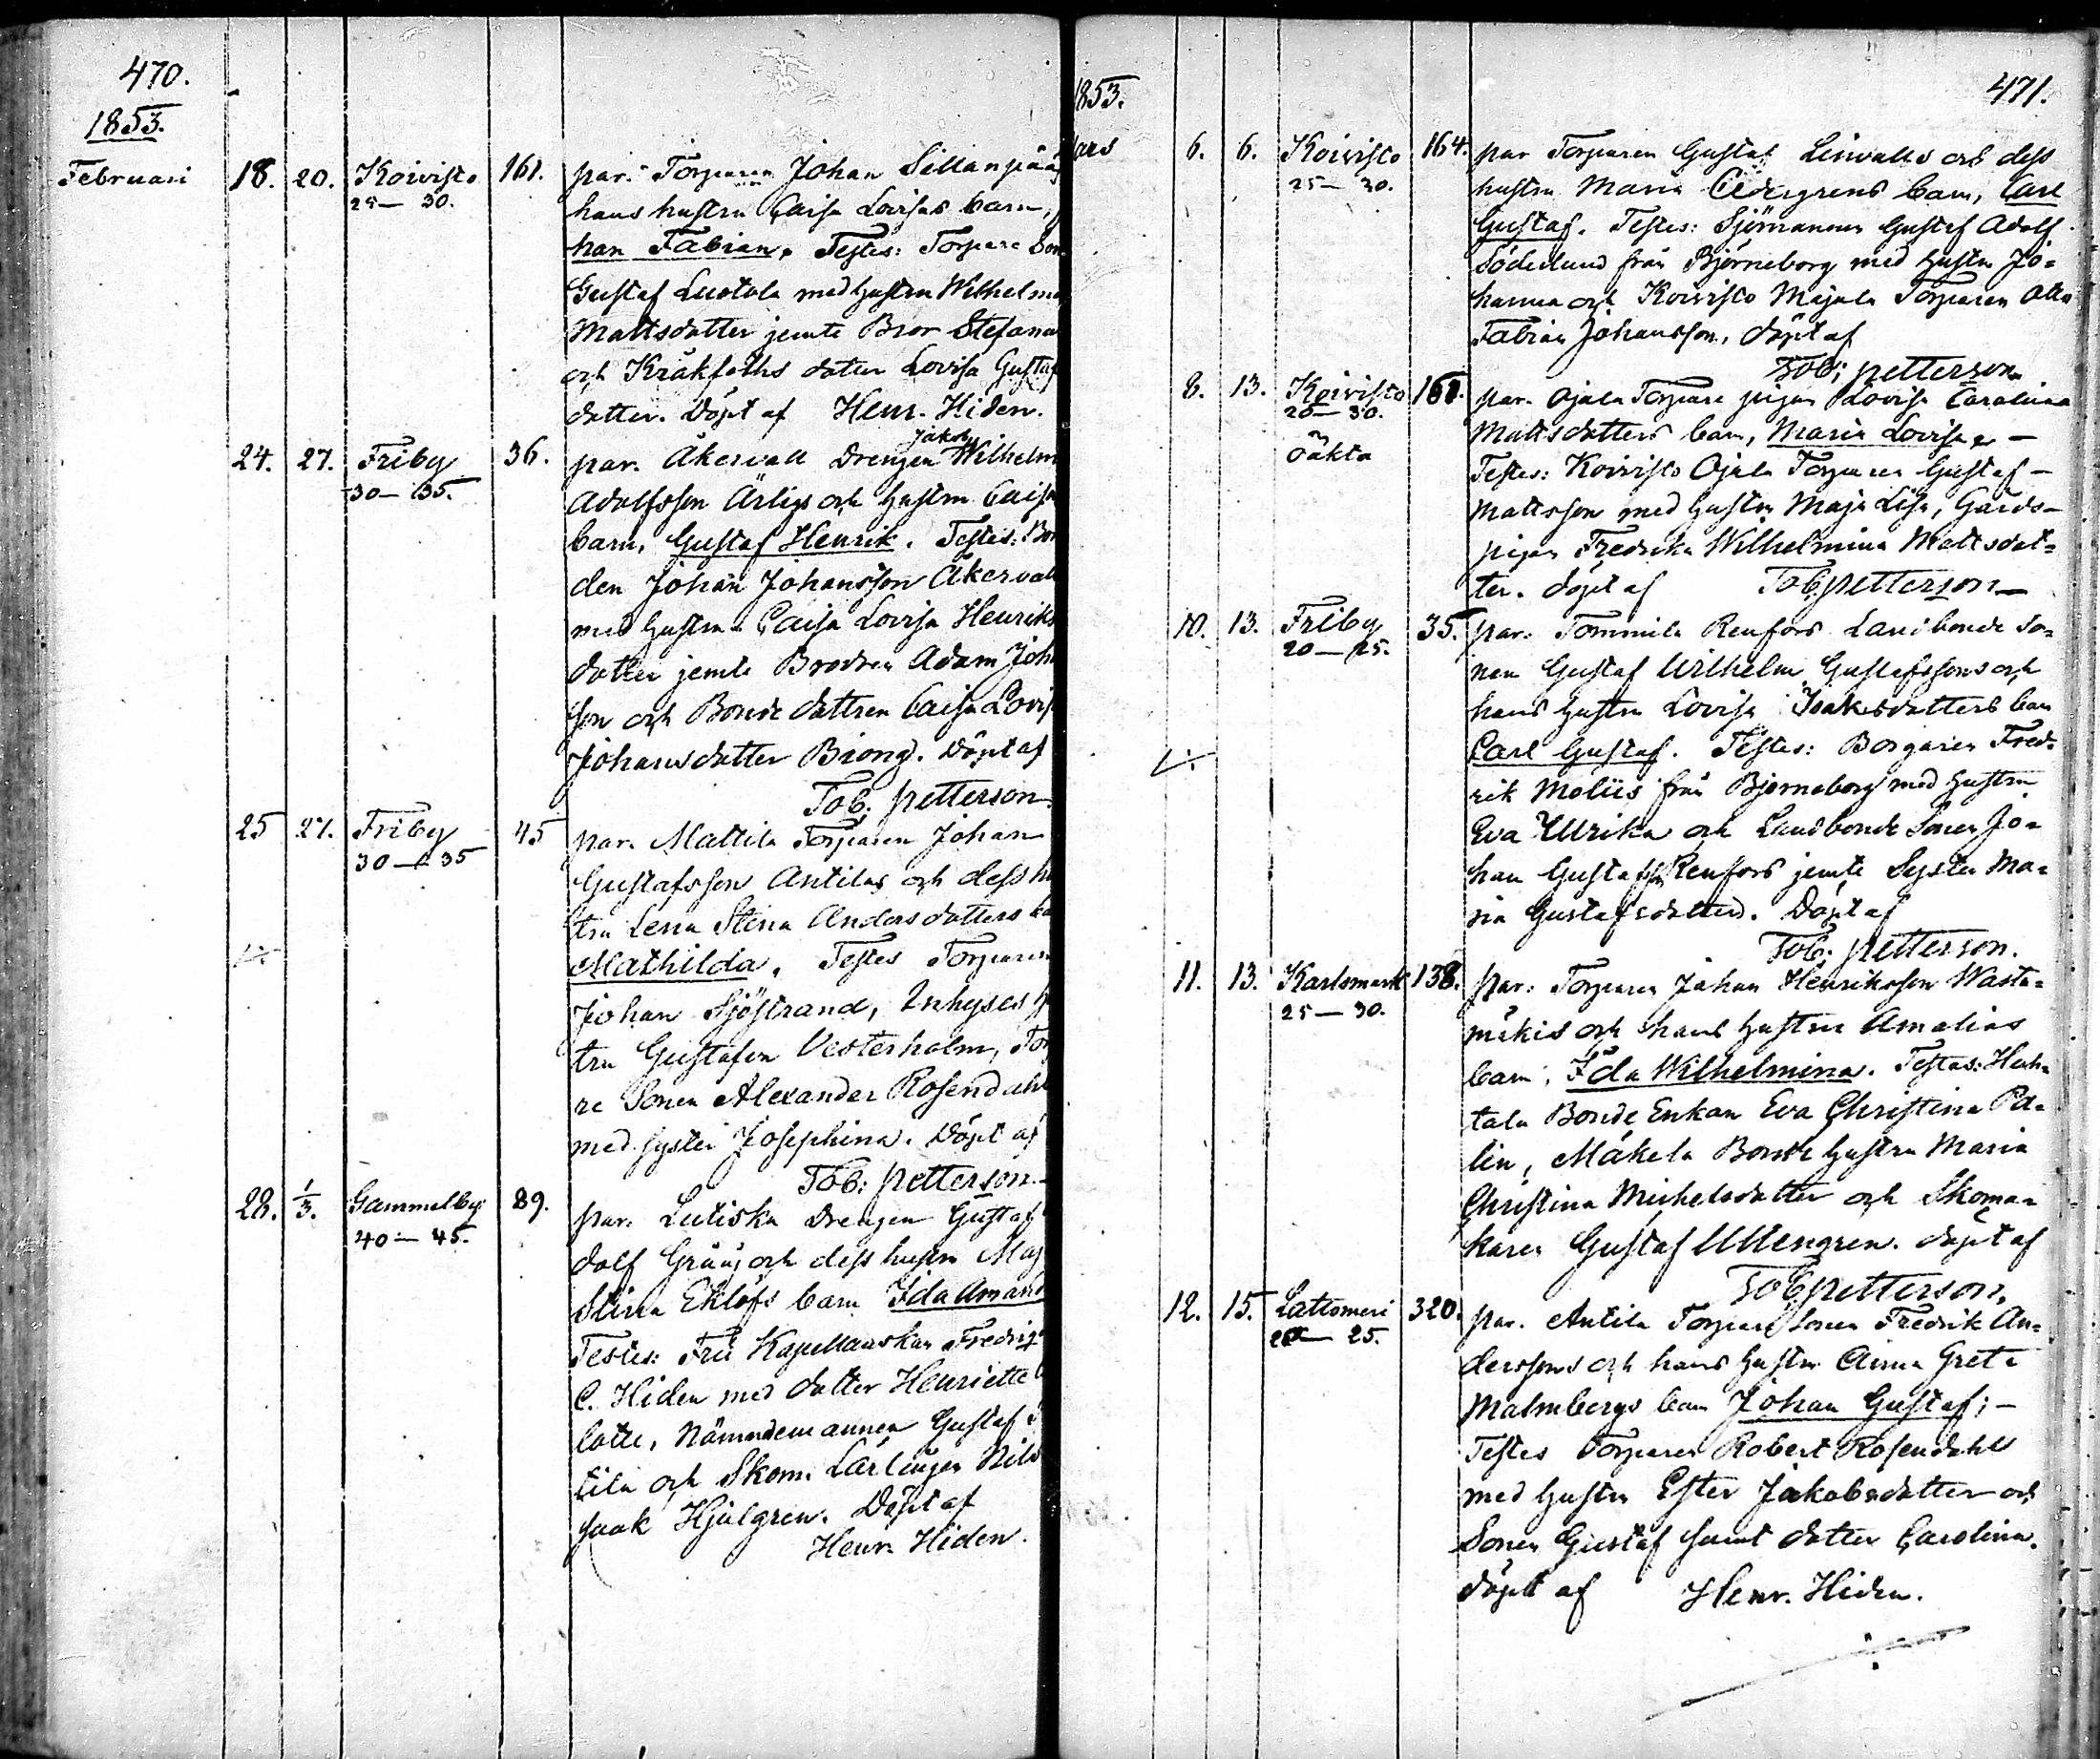 470.
1853.
Februari 18. 20. Koivisto 161. par. Torparen Johan Sillanpää
25 — 30. hans hustru Caisa Lovisas barn,
han Fabian. Testes: Torpare Son
Gustaf Luotola med hustru Wilhelm
Mattsdotter jemte Bror Stefanus
och Kråkfolks dotter Lovisa Gustaf
dotter. Döpt af Henr. Hiden.
24. 27. Friby 36. par. Åkervall Drengen Jakob Wilhelm
30 — 35. Adolfsson Ärligs och hustru Caisa
barn, Gustaf Henrik. Testes: Bon
den Johan Johansson Åkervall
med hustru Caisa Lovisa Henriks
dotter jemte Brodren Adam Joh
son och Bonde dottren Caisa Lovis
Johansdotter Biong. Döpt af
Tob. petterson.
25 27. Friby 45 par. Mattila Torparen Johan
30 — 35 Gustafsson Antilas och dess hu
tru Lena Stina Andersdotters ba
Mathilda. Testes Torparen
Johan Sjöstrand, Inhyses h
tru Gustafva Vesterholm, Tor
re Sonen Alexander Rosendahl
med syster Josephina. Döpt af
Tob: petterson.
28. 1/3. Gammelby 89. par. Lutiska Drengen Gustaf
40 — 45. dolf Grans och dess hustru Maj
Stina Eklöfs barn Ida Amand
Testes: Fru Kapellanskan Fredriq
C. Hiden med dotter Henriette
lotte, Nämndemannen Gustaf
tila och Skom. Lärlingen Nils
saak Hjulgren. Döpt af
Henr. Hiden.
1853. 471.
ars 6. 6. Koivisto 164. par Torparen Gustaf Linvalls och dess
25 — 30. hustru Maria Cedergrens barn, Carl
Gustaf. Testes: Sjömannen Gustaf Adolf
Söderlund från Björneborg med hustru Jo=
hanna och Koivisto Majala Torparen Otto
Fabian Johansson, döpt af
Tob; petterson.
8. 13. Koivisto 161. par. Ojala Torpare pigan Lovisa Carolina
20 — 30. Mattsdotters barn, Maria Lovisa, —
oäkta Testes: Koivisto Ojala Torparen Gustaf —
Mattsson med hustru Maja Lisa, Gårds-
pigan Fredrika Wilhelmina Mattsdot=
ter. döpt af Tob. petterson —
10. 13. Friby 35. par. Tommila Renfors Landbonde So=
20 — 25. nen Gustaf Wilhelm Gustafssons och
hans hustru Lovisa Isaksdotters barn
Carl Gustaf. Testes: Borgaren Fred=
rik Moliis från Bjorneborg med hustru
Eva Ullrika och Landbonde Sonen Jo=
han Gustafsson Renfors jemte Syster Ma=
ria Gustafsdotter. Döpt af
Tob. petterson.
11. 13. Karlsmark 138. par: Torparen Johan Henriksson Wasta=
25 — 30. mäkis och hans hustru Amalias
barn, Ida Wilhelmina. Testes: Huh=
tala Bonde Enkan Eva Christina Pa=
lin, Mäkela Bonde hustru Maria
Christina Michelsdotter och Skoma=
karen Gustaf Ullengren. döpt af
Tob petterson.
12. 15. Lattomeri 320. par. Antila Torpare Sonen Fredrik An=
25. derssons och hans hustru Anna Greta
Malmbergs barn Johan Gustaf; —
Testes Torparen Robert Rosendahl
med hustru Ester Jakobsdotter och
Sonen Gustaf samt dotter Carolina.
döpt af Henr. Hiden.